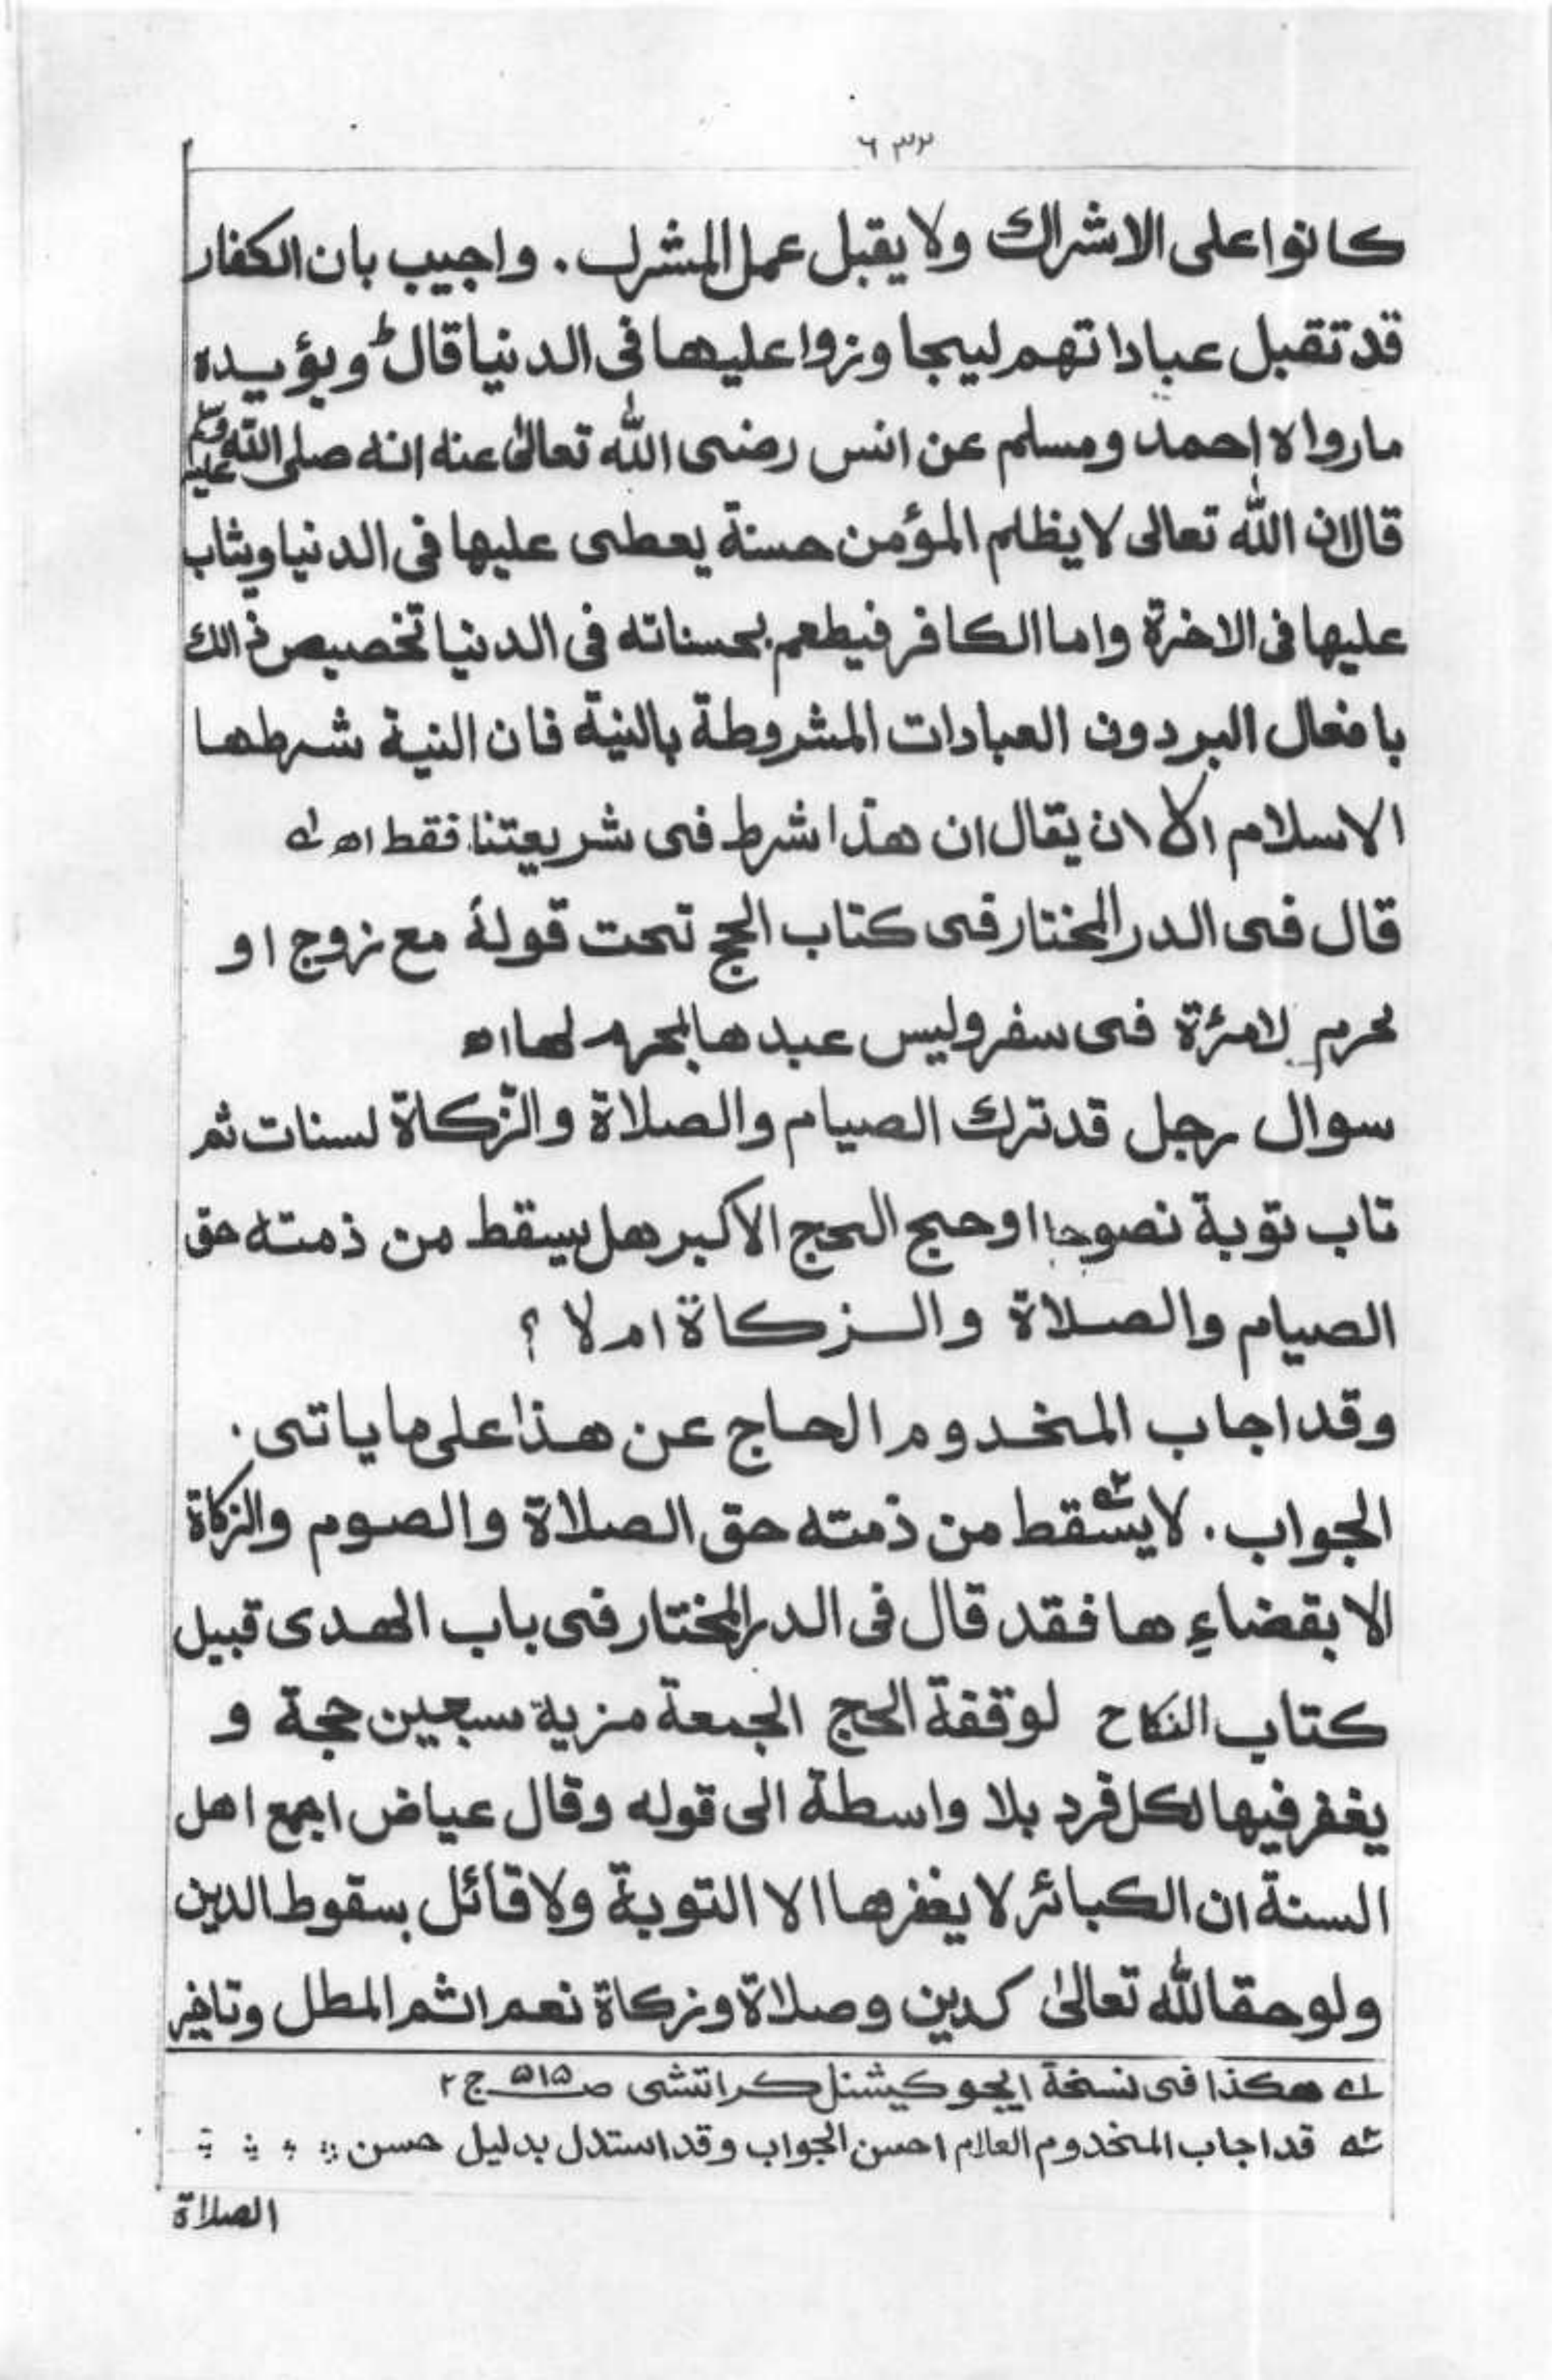 ٦٣٢
كانوا على الاشراك ولا يقبل عمل المشرك . واجيب بان الكفار
قد تقبل عباداتهم ليجاوزوا عليها فى الدنيا قال ط ويؤيده
مارواه احمد ومسلم عن انس رضى الله تعالىٰ عنه انه صلى الله عليه وسلم
قال ان الله تعالى لا يظلم المؤمن حسنة يعطى عليها فى الدنيا ويثاب
عليها فى الاخرة واما الكافر فيطعم بحسناته فى الدنيا تخصيص ذالك
بافعال البر دون العبادات المشروطة بالنية فان النية شرطها
الاسلام الا ان يقال ان هذا شرط فى شريعتنا فقط اه له
قال فى الدر المختار فى كتاب الحج تحت قوله مع زوج او
محرم لامرٔة فى سفر وليس عبدها بمحرم لها اه
سوال رجل قد ترك الصيام والصلاة والزّكاة لسنات ثم
تاب توبة نصوحا او حج الحج الاكبر هل يسقط من ذمته حق
الصيام والصلاة والزكاة ام لا ؟
وقد اجاب المخدوم الحاج عن هذا على ما ياتى .
الجواب . لا يسقط من ذمته حق الصلاة والصوم والزكاة
الا بقضاءِ ها فقد قال فى الدر المختار فى باب الهدى قبيل
كتاب النكاح لوقفة الحج الجمعة مزية سبعين حجة و
يغفر فيها لكل فرد بلا واسطة الى قوله وقال عياض اجمع اهل
السنة ان الكبائر لا يغفرها الا التوبة ولا قائل بسقوط الدين
ولو حقا لله تعالىٰ كدين وصلاة وزكاة نعم اثم المطل وتاخير
له هكذا فى نسخة ايجوكيشنل كراتشى صـ ٥١٥ ج ٢
قد اجاب المخدوم العلام احسن الجواب وقد استدل بدليل حسن
الصلاة